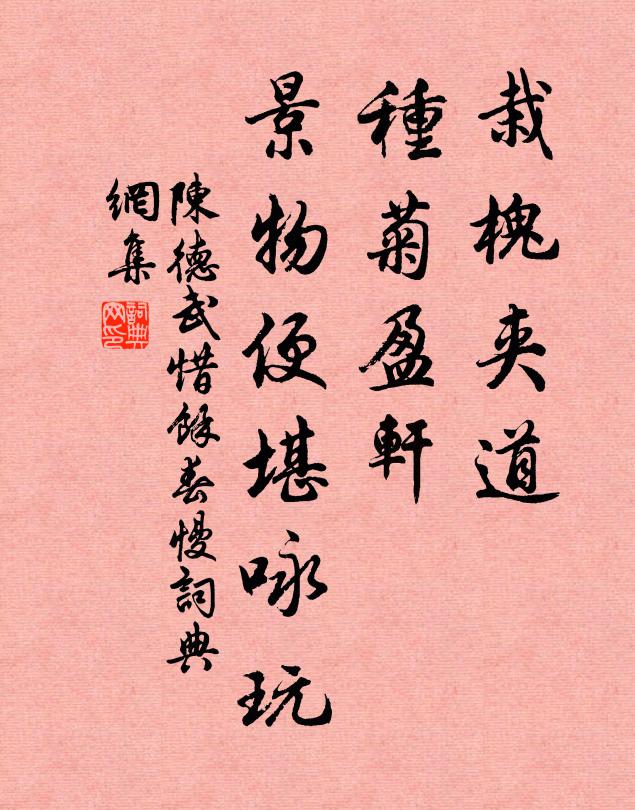 栽槐夾道
種菊盈軒
景物便堪咏玩
陳德武惜餘春慢詞典
網集
詞典网印